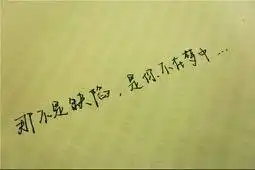 那不是缺陷，是你不在梦中…